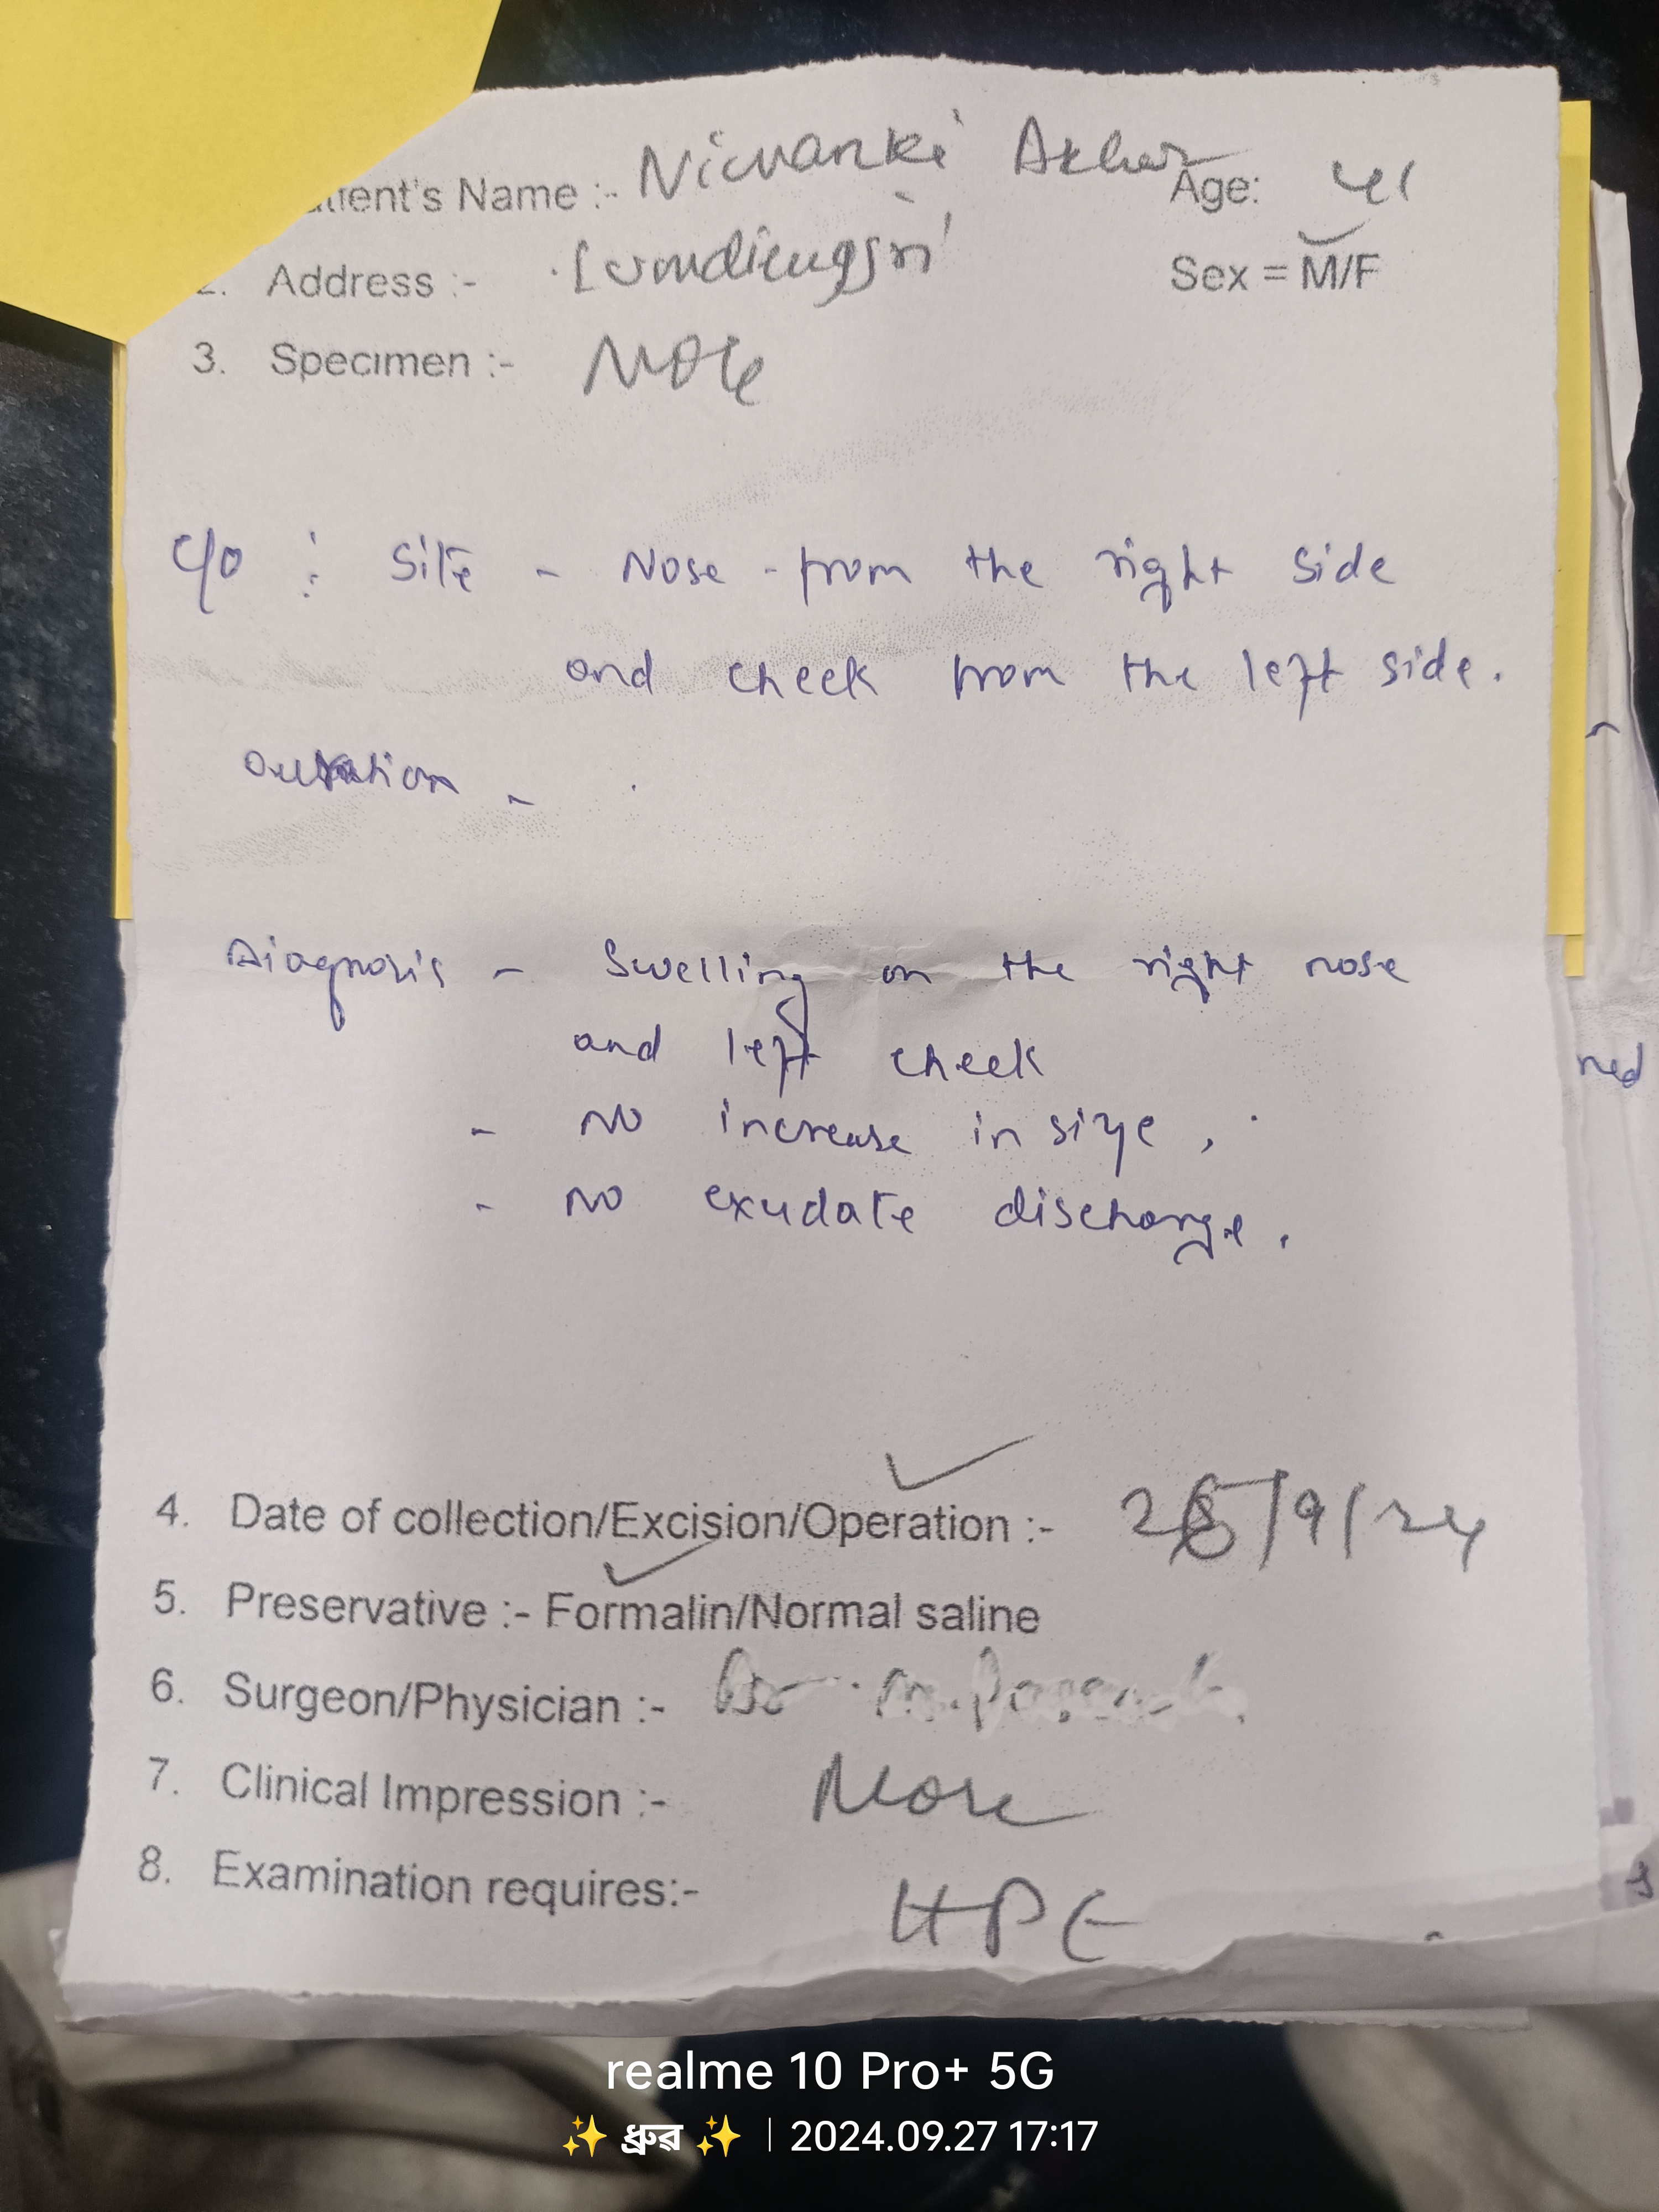 Patient's Name :- Age: 41
2. Address :- Sex = M/F
3. Specimen :- Mole
c/o : Site - Nose - from the right side
and cheek from the left side.
Duration -
Diagnosis - Swelling on the right nose
and left cheek
- NO increase in size,
- NO exudate discharge.
4. Date of collection/Excision/Operation :- /9/24
5. Preservative :- Formalin/Normal saline
6. Surgeon/Physician :- Dr. M.
7. Clinical Impression :-
8. Examination requires:- HPE
ned
realme 10 Pro+ 5G
✨ ধ্ৰুৱ ✨ | 2024.09.27 17:17